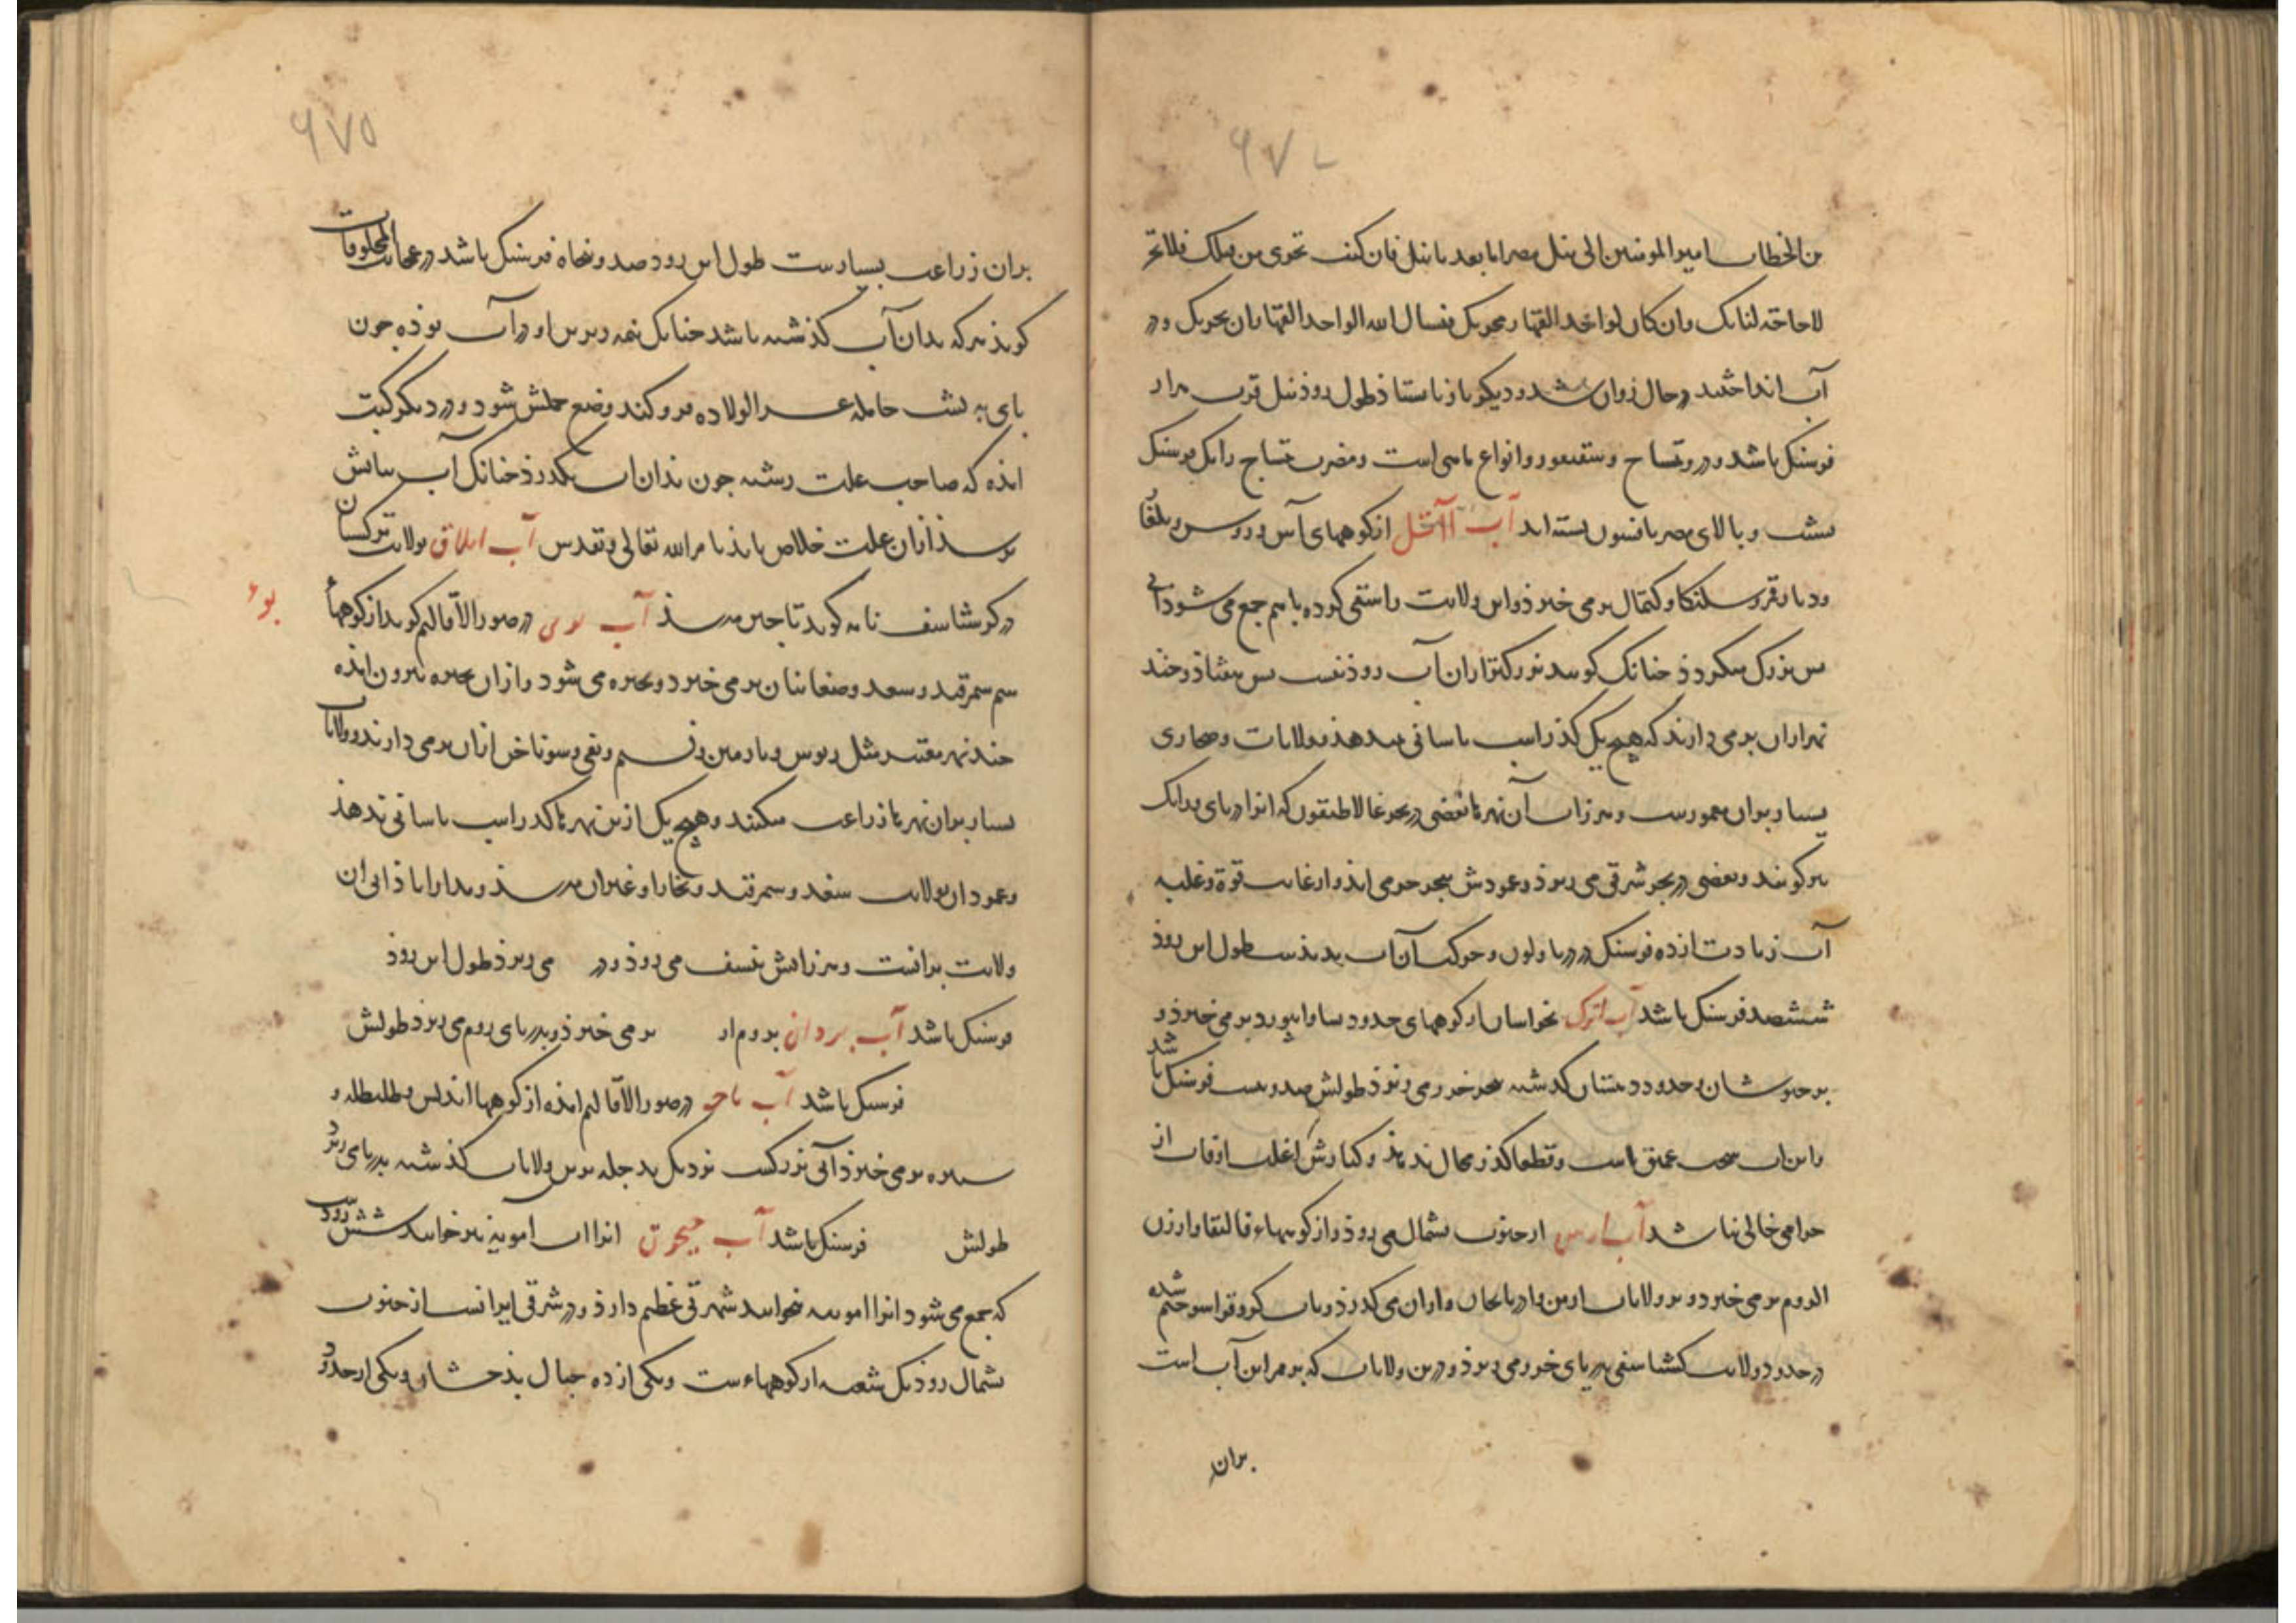 ۹۷۴
بن الخطاب امیر المومنین الی نیل مصر اما بعد یا نیل فان کنت تجری من قبلک فلا تجر
لا حاجة لنا بک وان کان الواحد القهار یجریک فنسال الله الواحد القهار ان یجریک و در
آب انداختند در حال روان شد و دیگر باز نایستاد طول رود نیل قرب هزار
فرسنگ باشد و درو تمساح و سقنقور و انواع ماهی است و مضرت تمساح را یک فرسنگ
آب آتل از کوههای آس و روس و بلغار
می‌خیزد و این ولایت را سقی کرده باهم جمع می‌شود آبی
بس بزرگ میگردد چنانک گویند بزرگتر از آن آب رود نیست بس هفتاد و چند
نهر از آن بر می‌دارند که هیچ یک گذر اسب باسانی ندهد و ولایات و صحاری
بسیار بر آن معمورست و هرز آب آن نهرها بعضی در بحر غالاطیقون که انرا دریای ورانک
نیز گویند و بعضی در بحر شرقی می ریزد و عمودش ببحر خزر می اید و از غایت قوة و غلبه
آب زیادت از ده فرسنگ در دریا و لون و حرکت آن آب پدیدست طول این رود
ششصد فرسنگ باشد آب اترک بخراسان از کوههای حدود نسا و ابیورد بر می خیزد و
بر خبوشان و حدود دهستان گذشته ببحر خزر می ریزد طولش صد و بیست فرسنگ باشد
و این آب سخت عمیق است و قطعا گذر مجال ندهد و کنارش اغلب اوقات از
حرامی خالی نباشد آب ارس از جنوب بشمال می رود و از کوههاء قالیقلا و ارزن
الروم بر می خیزد و بر ولایات ارمن و اذربایجان و اران می گذرد و باب کر و قراسو ختم شده
در حدود ولایت گشتاسفی بدریای خزر می ریزد و درین ولایات که بر ممر این آب است
بران
۹۷۵
بران زراعت بسیارست طول این رود صد و پنجاه فرسنگ باشد در عجایب المخلوقات
گوید هر که بدان آب گذشته باشد چنانک نیمه زیرین او در آب بوده چون
پای به پشت حامله عسر الولاده فرو کند وضع حملش شود و در دیگر کتب
امده که صاحب علت رشته چون بدان اب بگذرد چنانک آب بپایش
رسد از آن علت خلاص یابد بامر الله تعالی و تقدس آب ایلاق بولایت ترکستان
در گرشاسف نامه گوید تا چین میرسد آب بوی در صور الاقالیم گوید از کوههاء
بوی
سمرقند و سغد و صغانیان بر می خیزد و بحیره می شود و از آن بحیره بیرون امده
چند نهر معتبر مثل از آن بر می دارند و ولایات
بسیار بر آن نهرها زراعت میکنند و هیچ یک ازین نهرها گذر اسب باسانی ندهد
و عمود آن بولایت سغد و سمرقند و بخارا و غیر آن میرسد و مدار اباذانی ان
ولایت برآنست و هرز ابش بنسف می رود و در می ریزد طول این رود
فرسنگ باشد آب بردان بروم از بر می خیزد و بدریای روم می ریزد طولش
فرسنگ باشد آب تاجه در صور الاقالیم امده از کوههاء اندلس و طلیطله و
بر می خیزد آبی بزرگست نزدیک بدجله برین ولایات گذشته بدریا می ریزد
طولش فرسنگ باشد آب جیحون انرا اب امویه نیز خوانند شش رودست
که جمع می شود انرا امویه خوانند شهرتی عظیم دارد و در شرقی ایرانست از جنوب
بشمال رود یک شعبه از کوههاء تبت و یکی از ده جبال بدخشان و یکی از حدود